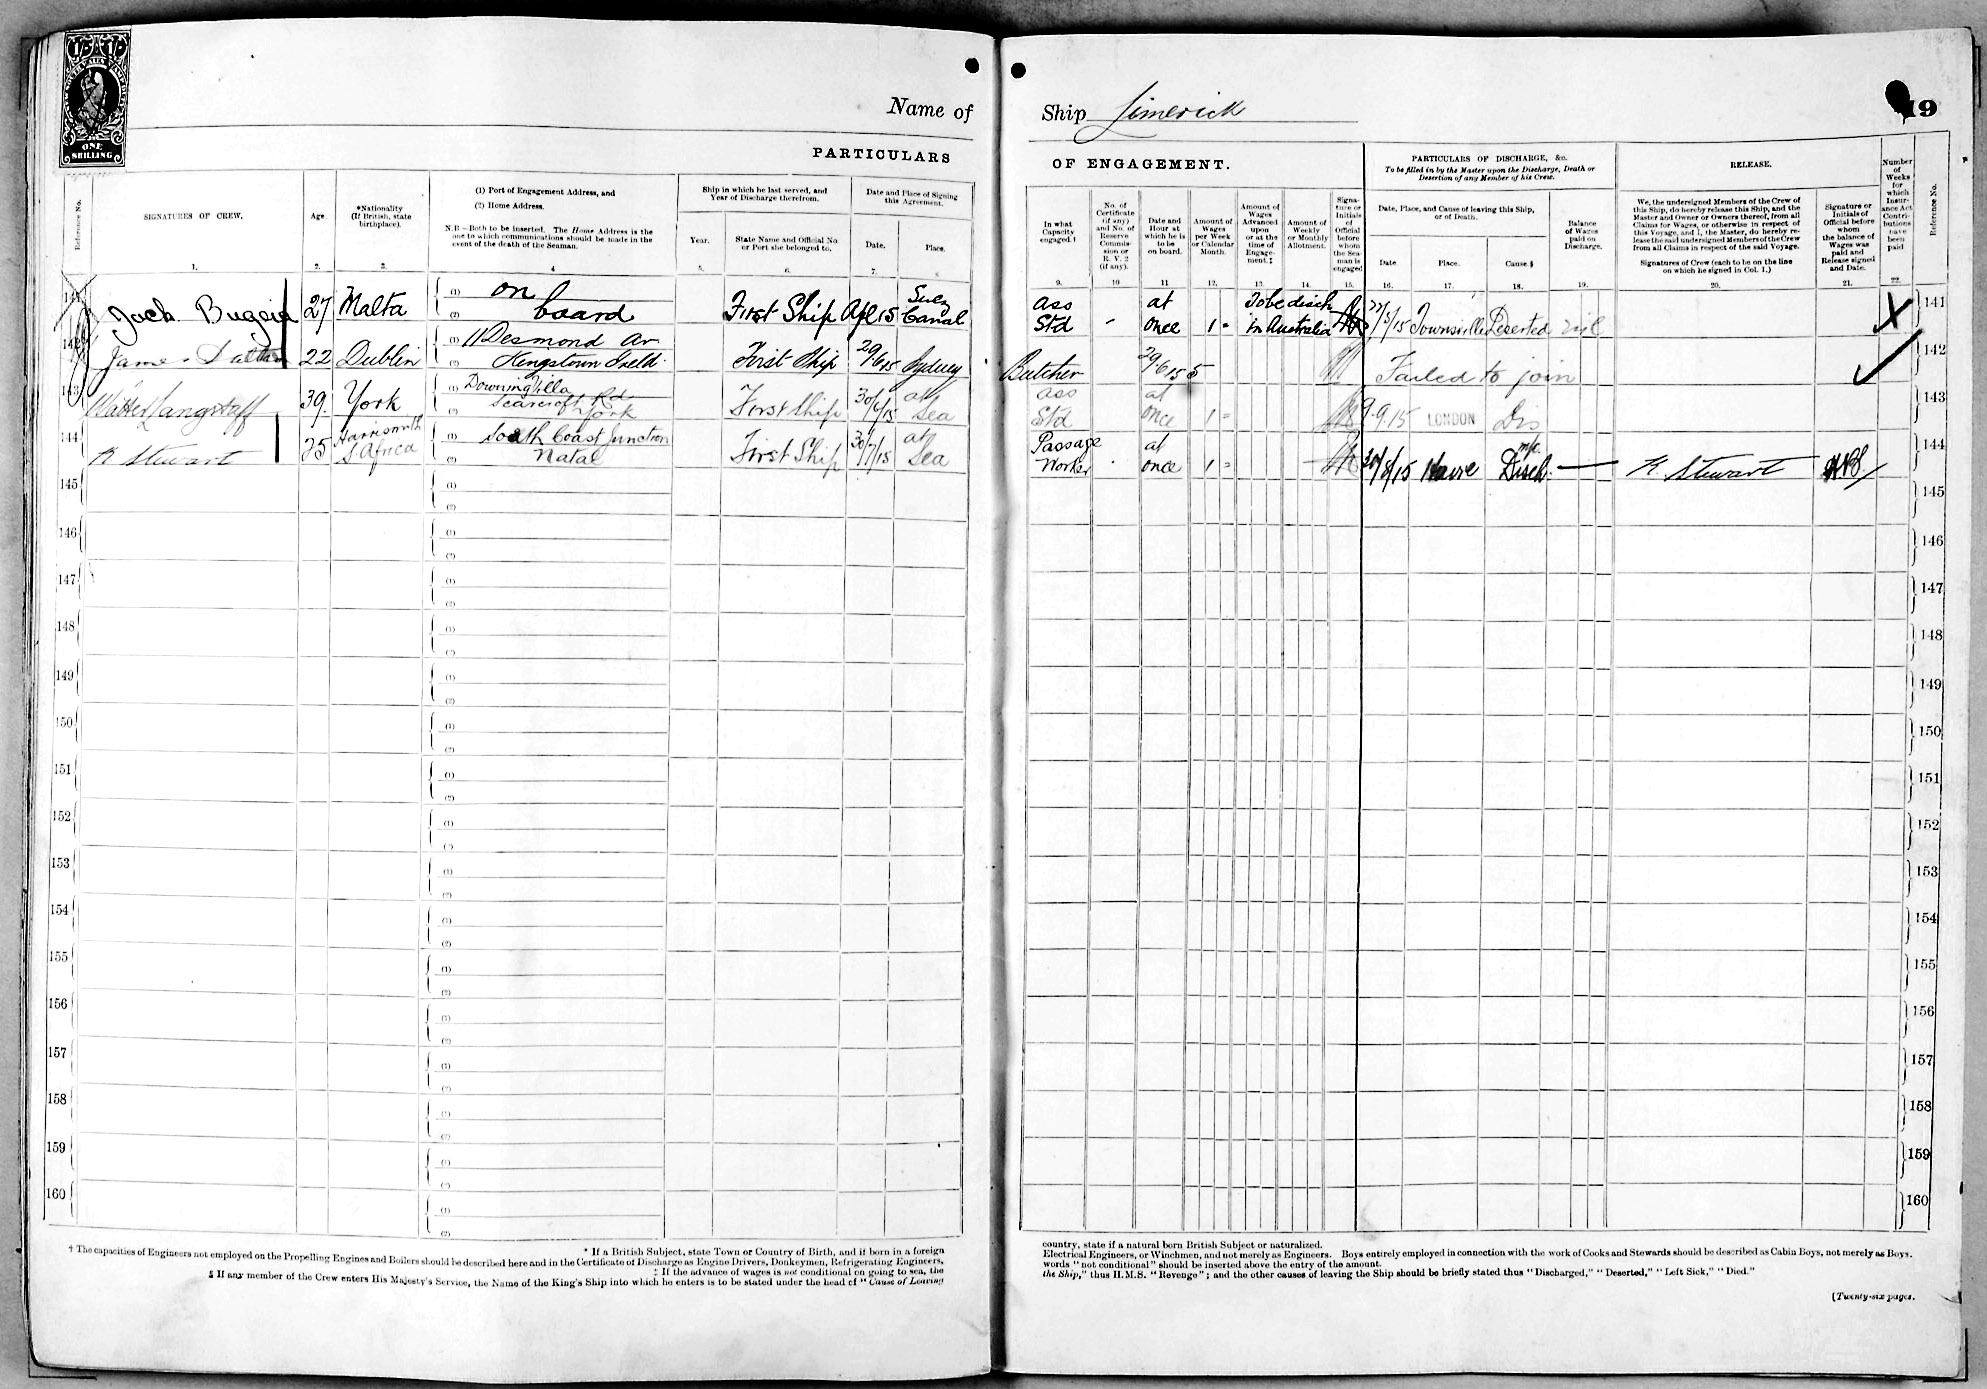 ONE
SHILLING
Name of
PARTICULARS
Reference No.
SIGNATURES OF CREW.
Age.
*Nationality
(If British, state
birthplace).
(1) Port of Engagement Address, and
(2) Home Address.
N.B.—Both to be inserted. The Home Address is the
one to which communications should be made in the
event of the death of the Seaman.
Ship in which he last served, and
Year of Discharge therefrom.
Year.
State Name and Official No.
or Port she belonged to.
Date and Place of Signing
this Agreement.
Date.
Place.
1. 2. 3. 4 5. 6. 7. 8
141 Jack Bugeia 27 Malta (1) on
(2) board First Ship Apl 15 Suez Canal
142 James 22 Dublin (1) 11 Desmond Av
(2) Kingstown First Ship 29/6/15 Sydney
143 Walter Langstaff 39 York (1) Downing Villa
(2) Scarcroft Rd York First Ship 30/6/15 at Sea
144 K Stewart 25 Harrismith S. Africa (1) South Coast Junction
(2) Natal First Ship 30/7/15 at Sea
145 (1)
(2)
146 (1)
(2)
147 (1)
(2)
148 (1)
(2)
149 (1)
(2)
150 (1)
(2)
151 (1)
(2)
152 (1)
(2)
153 (1)
(2)
154 (1)
(2)
155 (1)
(2)
156 (1)
(2)
157 (1)
(2)
158 (1)
(2)
159 (1)
(2)
160 (1)
(2)
* If a British Subject, state Town or Country of Birth, and if born in a foreign
† The capacities of Engineers not employed on the Propelling Engines and Boilers should be described here and in the Certificate of Discharge as Engine Drivers, Donkeymen, Refrigerating Engineers,
‡ If the advance of wages is not conditional on going to sea, the
§ If any member of the Crew enters His Majesty's Service, the Name of the King's Ship into which he enters is to be stated under the head of "Cause of Leaving
Ship Limerick
19
OF ENGAGEMENT.
PARTICULARS OF DISCHARGE, &c.
To be filled in by the Master upon the Discharge, Death or
Desertion of any Member of his Crew.
RELEASE.
Number
of
Weeks
for
which
Insur-
ance Act
Contri-
butions
have
been
paid
Reference No.
In what
Capacity
engaged.†
No. of
Certificate
(if any)
and No. of
Reserve
Commis-
sion or
R. V. 2
(if any).
Date and
Hour at
which he is
to be
on board.
Amount of
Wages
per Week
or Calendar
Month.
Amount of
Wages
Advanced
upon
or at the
time of
Engage-
ment.‡
Amount of
Weekly
or Monthly
Allotment.
Signa-
ture or
Initials
of
Official
before
whom
the Sea-
man is
engaged
Date, Place, and Cause of leaving this Ship,
or of Death.
Date.
Place.
Cause.§
Balance
of Wages
paid on
Discharge.
We, the undersigned Members of the Crew of
this Ship, do hereby release this Ship, and the
Master and Owner or Owners thereof, from all
Claims for Wages, or otherwise in respect of
this Voyage, and I, the Master, do hereby re-
lease the said undersigned Members of the Crew
from all Claims in respect of the said Voyage.
Signatures of Crew (each to be on the line
on which he signed in Col. 1.)
Signature or
Initials of
Official before
whom
the balance of
Wages was
paid and
Release signed
and Date.
9. 10 11 12. 13. 14. 15. 16. 17. 18. 19. 20. 21. 22.
Ass Std - at once 1 = To be disch in Australia 27/5/15 Townsville Deserted nil X 141
Butcher 29/6/15 5 Failed to join 142
Ass Std at once 1 = 9.9.15 LONDON Dis 143
Passage Worker at once 1 = 30/8/15 Havre Disch. K. Stewart 144
145
146
147
148
149
150
151
152
153
154
155
156
157
158
159
160
country, state if a natural born British Subject or naturalized.
Electrical Engineers, or Winchmen, and not merely as Engineers. Boys entirely employed in connection with the work of Cooks and Stewards should be described as Cabin Boys, not merely as Boys.
words "not conditional" should be inserted above the entry of the amount.
the Ship," thus H.M.S. "Revenge"; and the other causes of leaving the Ship should be briefly stated thus "Discharged," "Deserted," "Left Sick," "Died."
(Twenty-six pages.